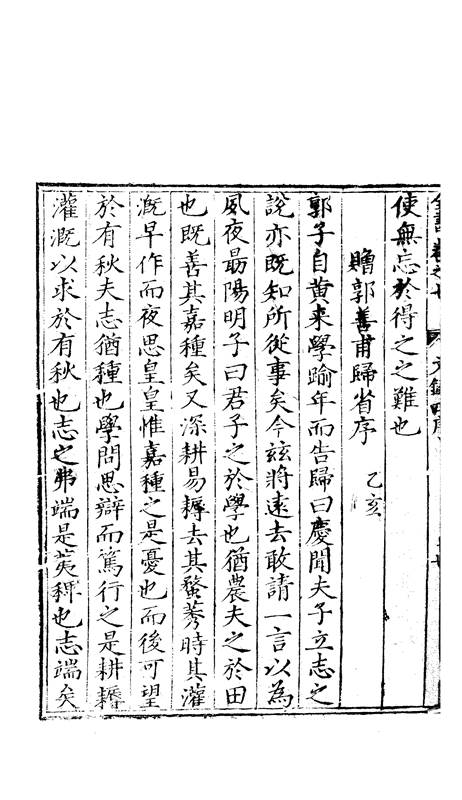 全書卷之七 文錄四序
使無忘於得之之難也
贈郭善甫歸省序 乙亥
郭子自黃來學踰年而告歸曰慶聞夫子立志之
說亦既知所從事矣今茲將遠去敢請一言以為
夙夜勗陽明子曰君子之於學也猶農夫之於田
也既善其嘉種矣又深耕易耨去其蝥莠時其灌
溉早作而夜思皇皇惟嘉種之是憂也而後可望
於有秋夫志猶種也學問思辯而篤行之是耕耨
灌溉以求於有秋也志之弗端是荑稗也志端矣